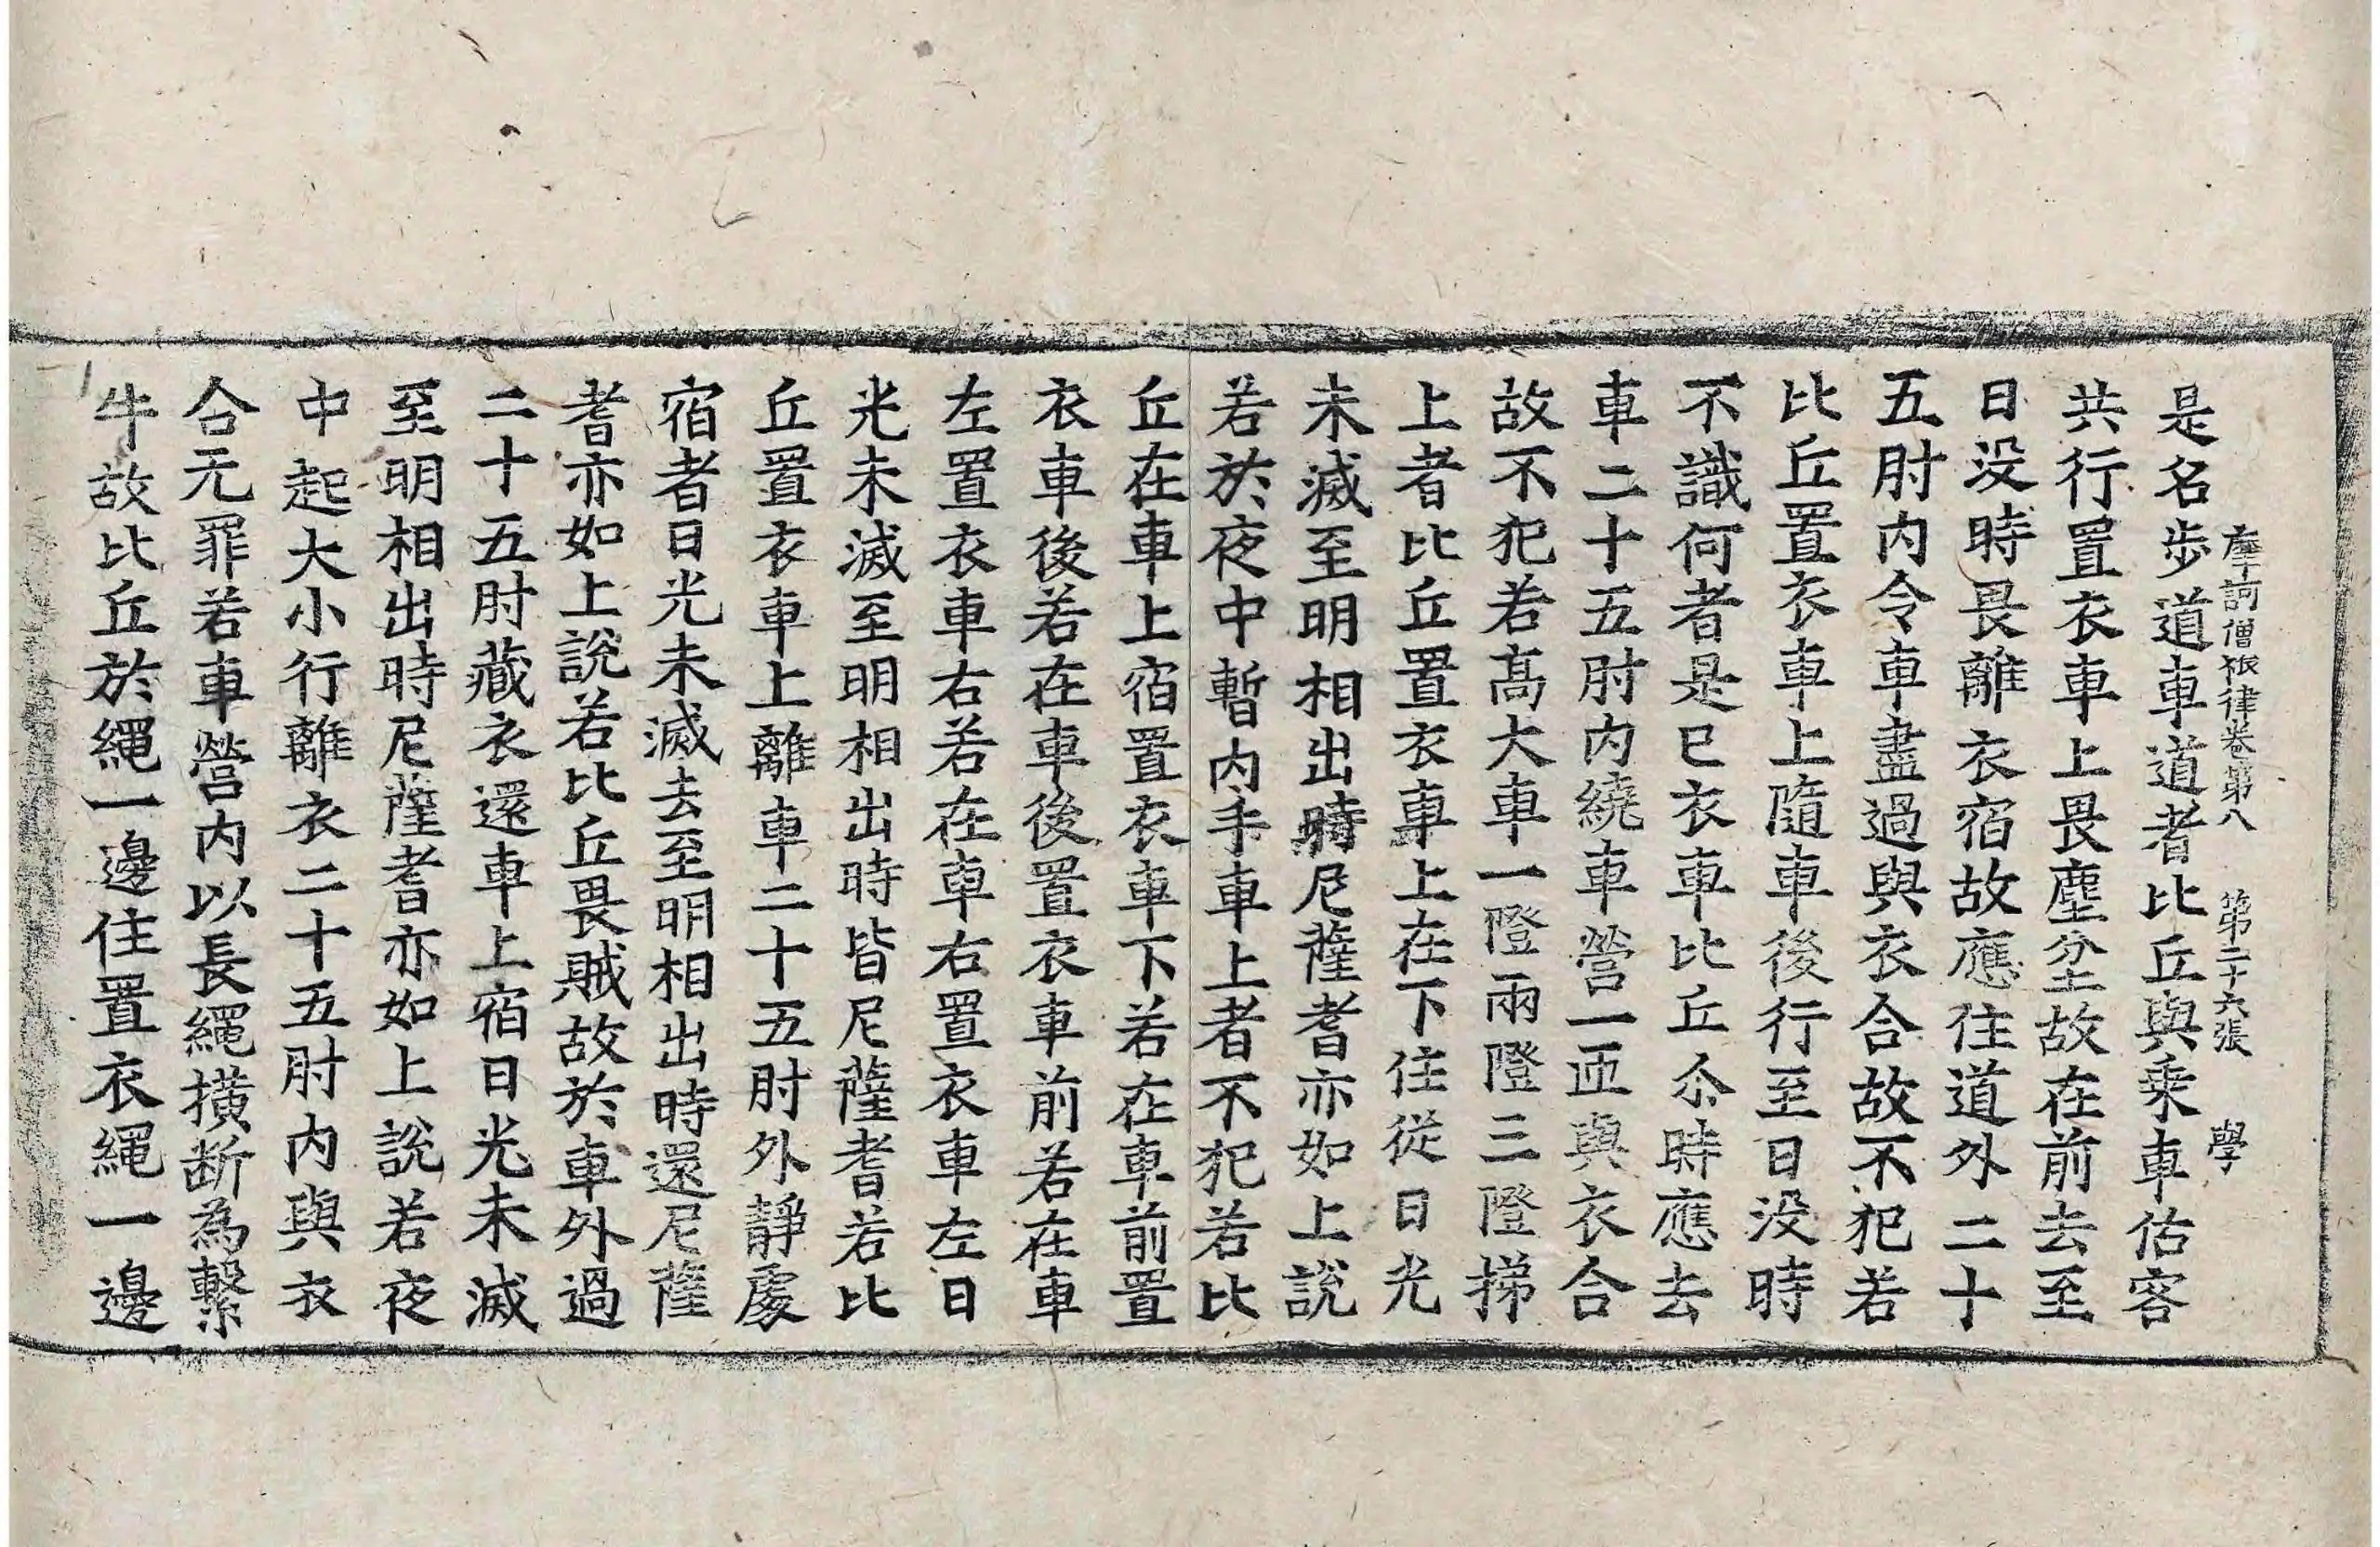 是名步道車道者比丘與乗車估客
摩訶僧祇律卷第八 第二十六張 學
共行置衣車上畏塵坌故在前去至
日没時畏離衣宿故應住道外二十
五肘内令車盡過與衣合故不犯若
比丘置衣車上隨車後行至日没時
不識何者是已衣車比丘尒時應去
車二十五肘内繞車營一迊與衣合
故不犯若髙大車一隥兩隥三隥挮
上者比丘置衣車上在下住從日光
未滅至明相出時尼薩耆亦如上說
若於夜中暫内手車上者不犯若比
丘在車上宿置衣車下若在車前置
衣車後若在車後置衣車前若在車
左置衣車右若在車右置衣車左日
光未滅至明相出時皆尼薩耆若比
丘置衣車上離車二十五肘外靜處
宿者日光未滅去至明相出時還尼薩
耆亦如上說若比丘畏賊故於車外過
二十五肘藏衣還車上宿日光未滅
至明相出時尼薩耆亦如上說若夜
中起大小行離衣二十五肘内與衣
合无罪若車營内以長繩橫断為繫
牛故比丘於繩一邊住置衣繩一邊